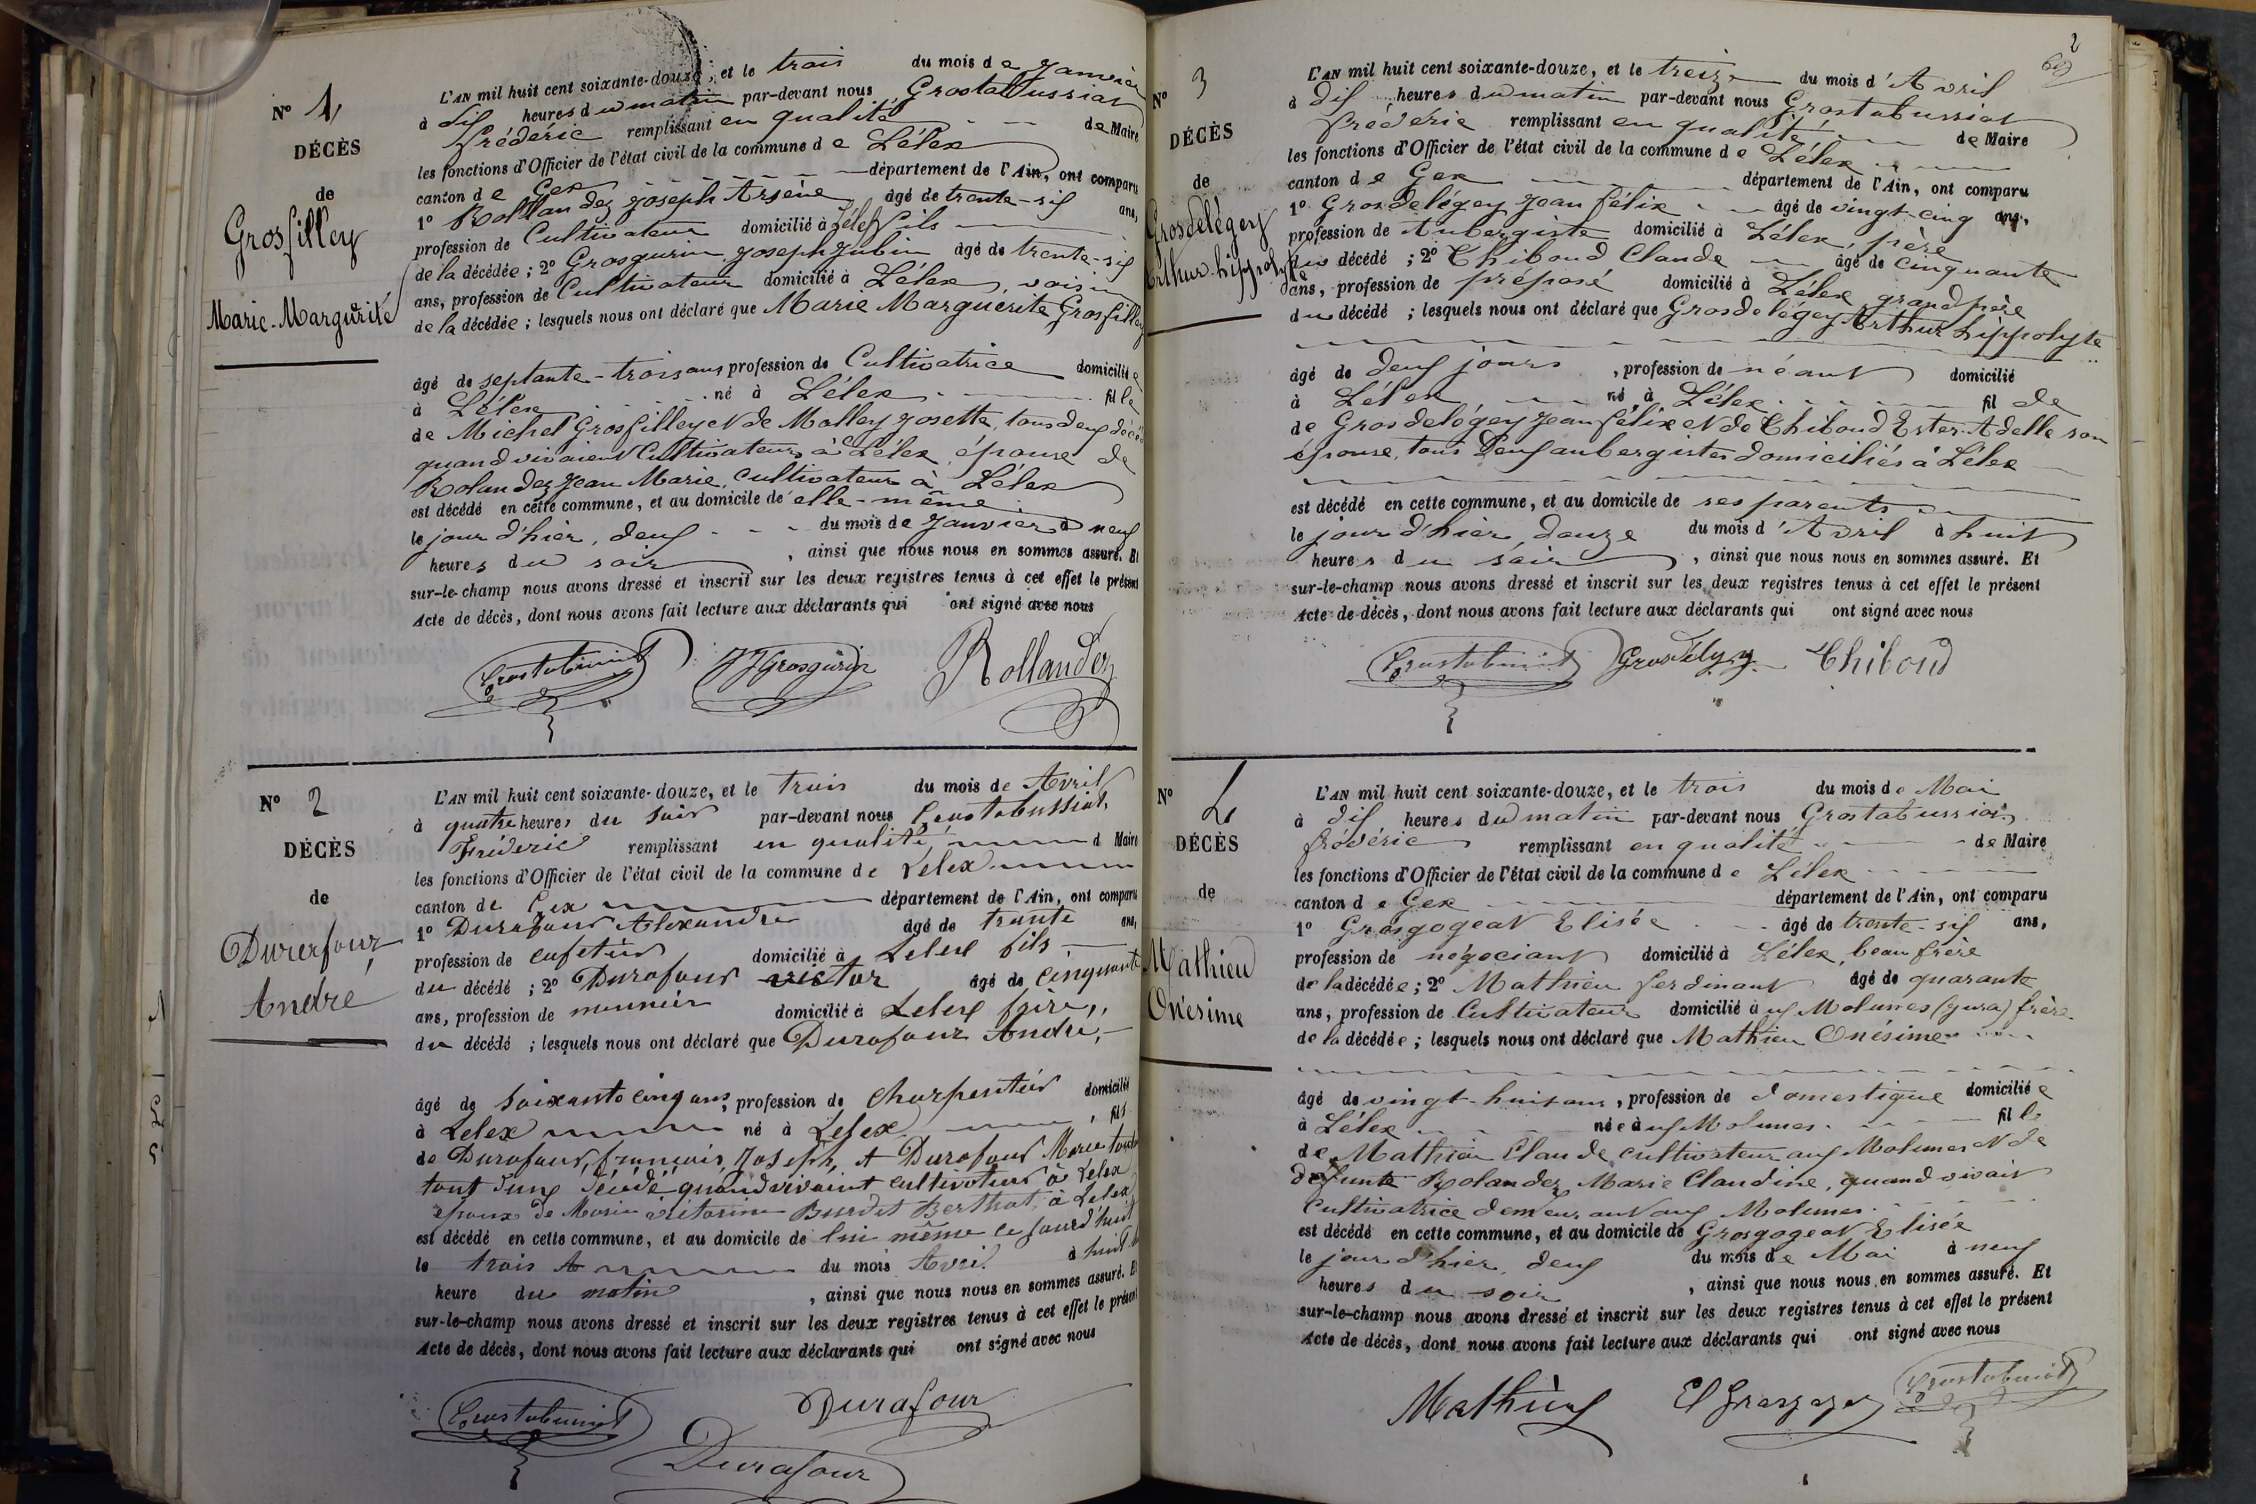 N° 1
DÉCÈS
de
Grosfilley
Marie-Margurite
L'AN mil huit cent soixante-douze, et le trois du mois de Janvier
à dix heures du matin par-devant nous Grostabussiat
Frédéric remplissant en qualité de Maire
les fonctions d'Officier de l'état civil de la commune de Lélex
canton de Gex département de l'Ain, ont comparu
1° Rollandez Joseph Arsène âgé de trente-six ans,
profession de Cultivateur domicilié à Lélex fils
de la décédée ; 2° Grosgurin Joseph Jubin âgé de trente-six
ans, profession de Cultivateur domicilié à Lélex, voisin
de la décédée ; lesquels nous ont déclaré que Marie Marguerite Grosfilley
âgé de septante-trois ans profession de Cultivatrice domiciliée
à Lélex né à Lélex fille
de Michel Grosfilley et de Molley Josette, tous deux décédés
quand vivaient Cultivateurs à Lélex, épouse de
Rolandez Jean Marie, cultivateur à Lélex
est décédé en cette commune, et au domicile de elle-même
le jour d'hier, deux du mois de Janvier à neuf
heures du soir, ainsi que nous nous en sommes assuré. Et
sur-le-champ nous avons dressé et inscrit sur les deux registres tenus à cet effet le présent
Acte de décès, dont nous avons fait lecture aux déclarants qui ont signé avec nous
Grostabussiat JJ Grosgurin Rollandez
N° 2
DÉCÈS
de
Durafour
André
L'AN mil huit cent soixante-douze, et le trois du mois de Avril
à quatre heures du soir par-devant nous Grostabussiat
Fréderic remplissant en qualité d Maire
les fonctions d'Officier de l'état civil de la commune de Lelex
canton de Gex département de l'Ain, ont comparu
1° Durafour Alexandre âgé de trente ans,
profession de cafetier domicilié à Lelex fils
du décédé ; 2° Durafour victor âgé de cinquante
ans, profession de meunier domicilié à Lelex frère,
du décédé ; lesquels nous ont déclaré que Durafour André,
âgé de soixante cinq ans, profession de Charpentier domicilié
à Lelex né à Lelex, fils
de Durafour, françois, Joseph, et Durafour Marie
tout deux décédé quand vivaient cultivateur à Lelex
époux de Marie victorine Burdet Berthot à Lelex
est décédé en cette commune, et au domicile de lui même ce jourd'huit
le trois du mois Avril à huit
heure du matin, ainsi que nous nous en sommes assuré. Et
sur-le-champ nous avons dressé et inscrit sur les deux registres tenus à cet effet le présent
Acte de décès, dont nous avons fait lecture aux déclarants qui ont signé avec nous
Grostabussiat Durafour
Durafour
2
N° 3
DÉCÈS
de
Grosdelégey
Arthur-hippolyte
L'AN mil huit cent soixante-douze, et le treize du mois d'Avril
à dix heures du matin par-devant nous Grostabussiat
frédéric remplissant en qualité de Maire
les fonctions d'Officier de l'état civil de la commune de Lélex
canton de Gex département de l'Ain, ont comparu
1° Grosdelégey Jean félix âgé de vingt-cinq ans,
profession de Aubergiste domicilié à Lélex, père
du décédé ; 2° Thiboud Claude âgé de cinquante
ans, profession de préposé domicilié à Lélex grand père
du décédé ; lesquels nous ont déclaré que Grosdelégey Arthur hippolyte
âgé de deux jours, profession de néant domicilié
à Lélex né à Lélex fil de
de Grosdelégey Jean félix et de Thiboud Ester Adelle son
épouse, tous deux aubergistes domiciliés à Lélex
est décédé en cette commune, et au domicile de ses parents
le jour d'hier, douze du mois d'Avril à huit
heures du soir, ainsi que nous nous en sommes assuré. Et
sur-le-champ nous avons dressé et inscrit sur les deux registres tenus à cet effet le présent
Acte de décès, dont nous avons fait lecture aux déclarants qui ont signé avec nous
Grostabussiat Thiboud
N° 4
DÉCÈS
de
Mathieu
Onésime
L'AN mil huit cent soixante-douze, et le trois du mois de Mai
à dix heures du matin par-devant nous Grostabussiat
frédéric remplissant en qualité de Maire
les fonctions d'Officier de l'état civil de la commune de Lélex
canton de Gex département de l'Ain, ont comparu
1° Grosgogeat Elisée âgé de trente-six ans,
profession de négociant domicilié à Lélex, beau frère
de la décédée ; 2° Mathieu ferdinant âgé de quarante
ans, profession de Cultivateur domicilié à ux Molunes (Jura) frère
de la décédée ; lesquels nous ont déclaré que Mathieu Onésime
âgé de vingt-huit ans, profession de domestique domiciliée
à Lélex née à ux Molunes fille
de Mathieu Claude cultivateur aux Molunes et de
défunte Rolandez Marie Claudine, quand vivait
Cultivatrice demeurant aux Molunes
est décédé en cette commune, et au domicile de Grosgogeat Elisée
le jour d'hier, deux du mois de Mai à neuf
heures du soir, ainsi que nous nous en sommes assuré. Et
sur-le-champ nous avons dressé et inscrit sur les deux registres tenus à cet effet le présent
Acte de décès, dont nous avons fait lecture aux déclarants qui ont signé avec nous
Mathieu El Grosgogeat Grostabussiat